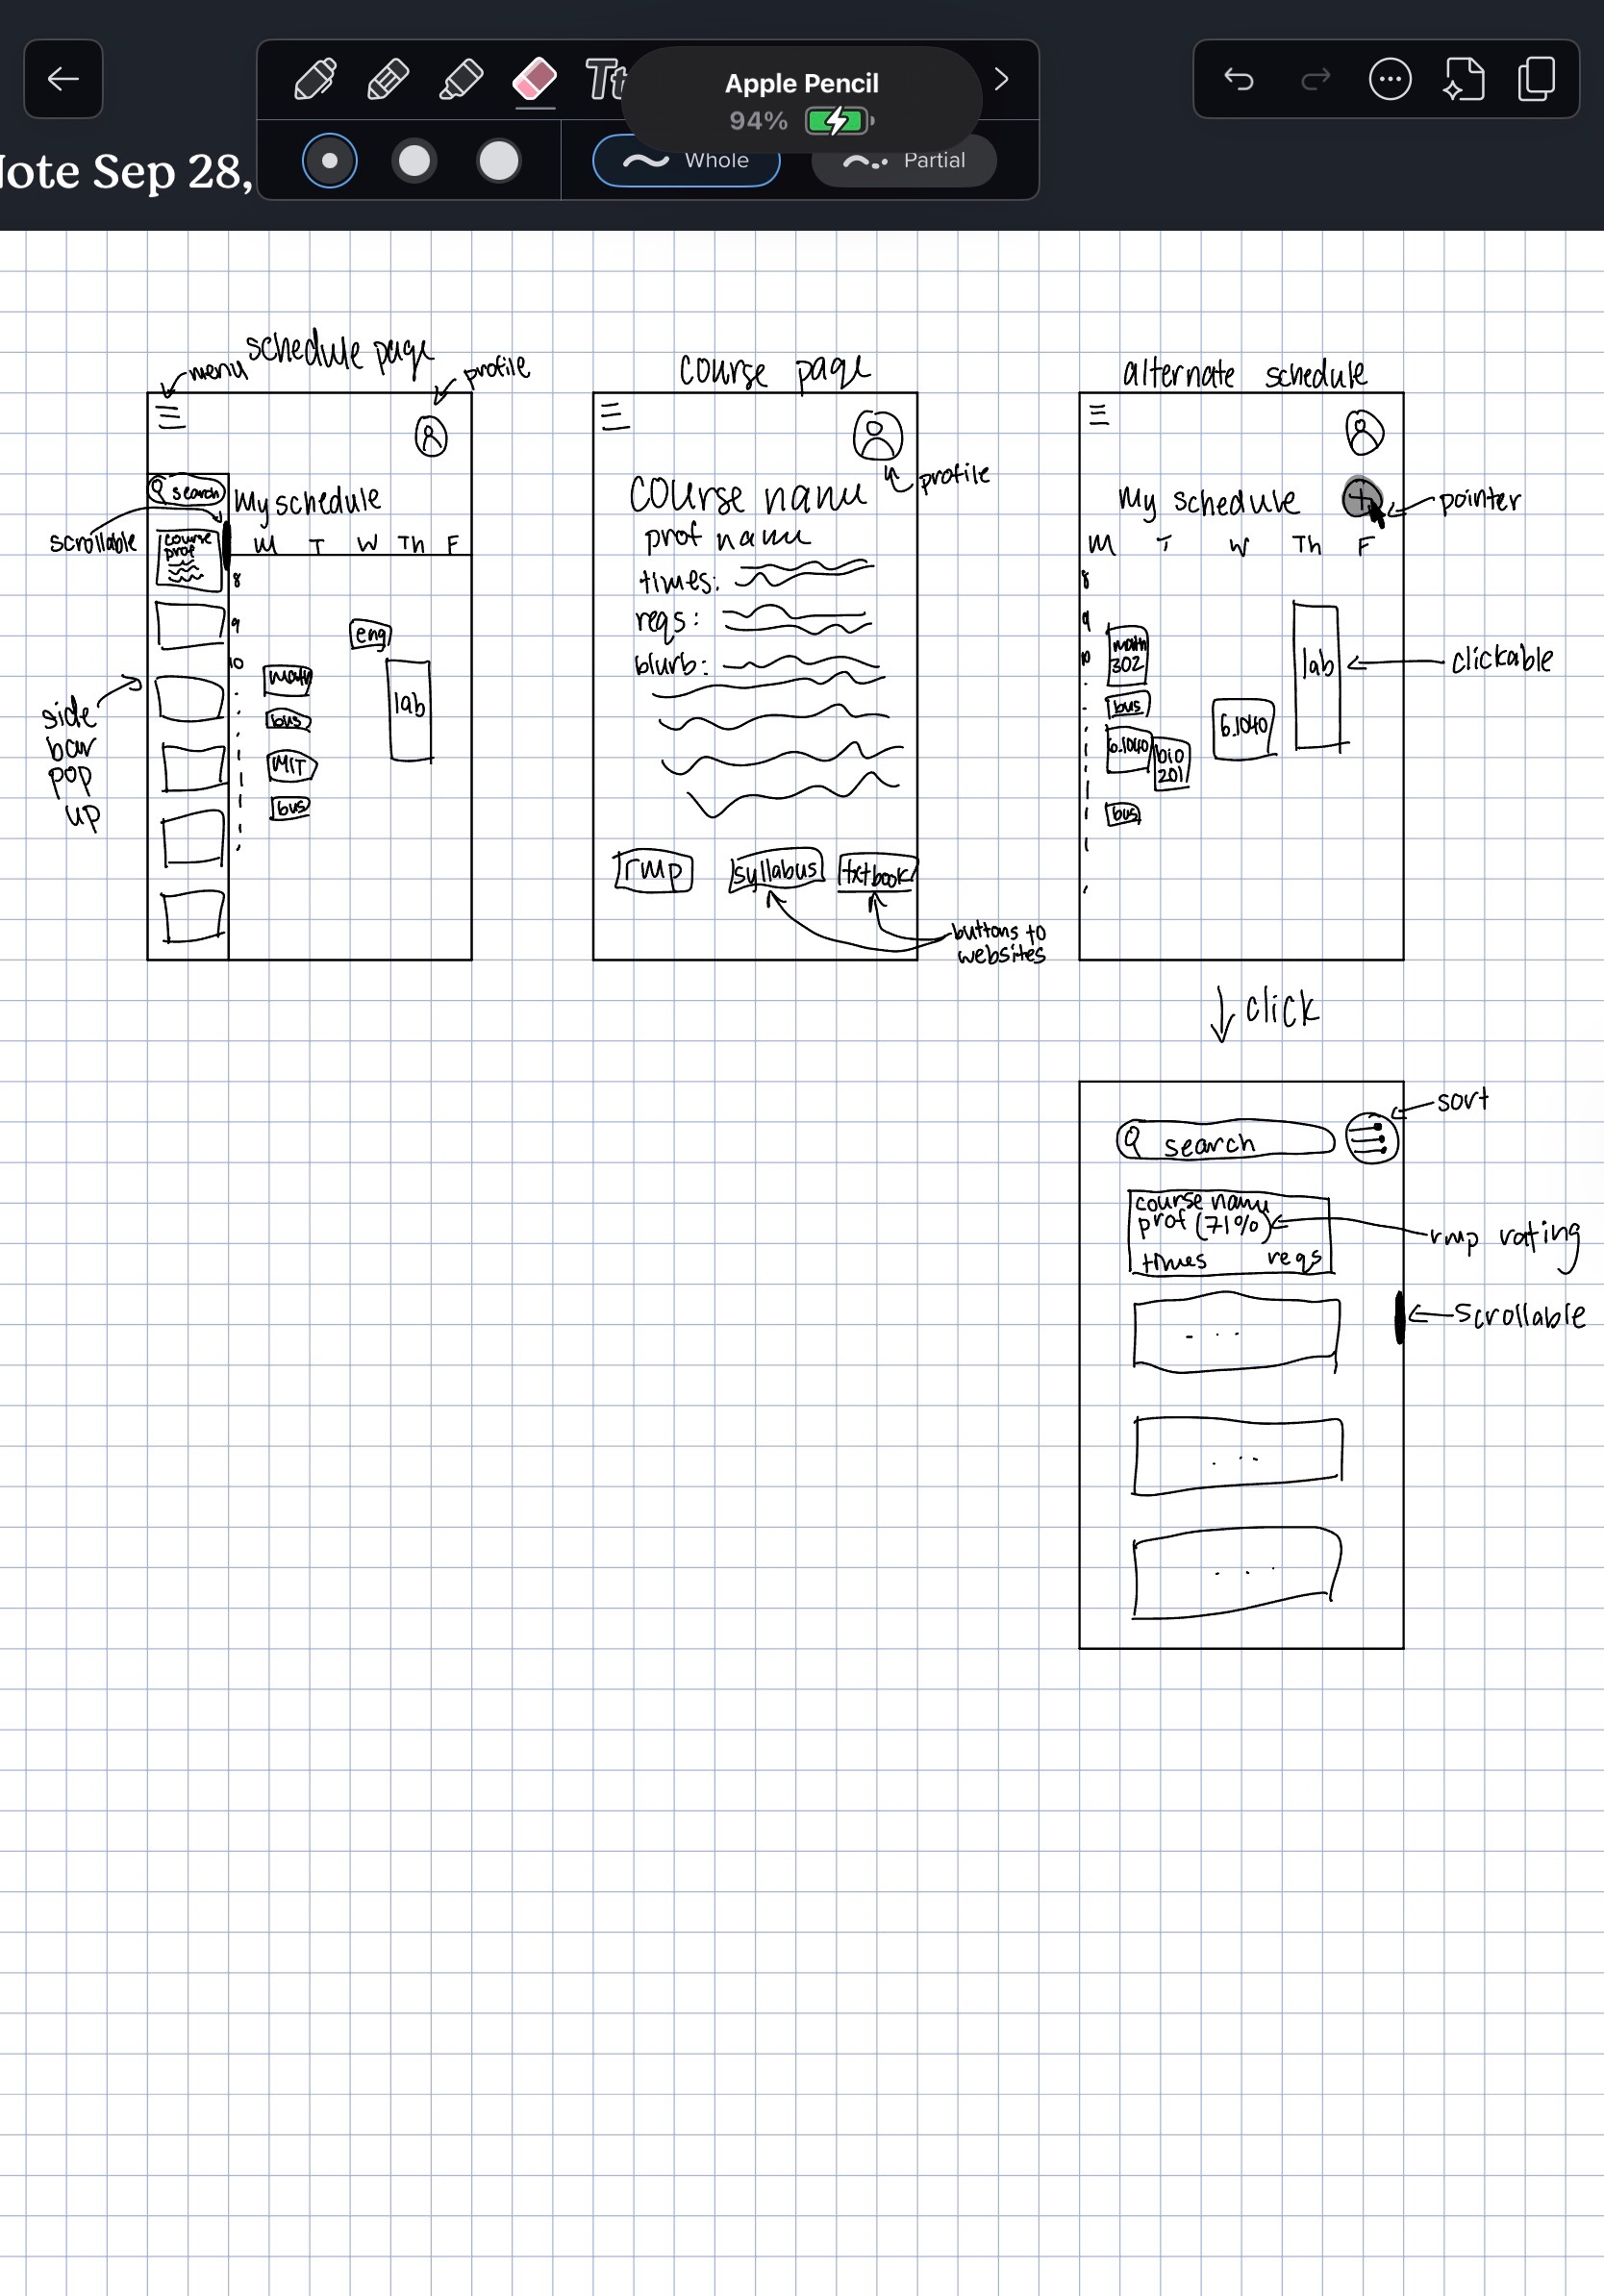 Apple Pencil
94%
Tt
Whole
Partial
ote Sep 28,
schedule page
menu
profile
search
My schedule
scrollable
course
prof
M T W Th F
8
9
10
eng
math
lab
bus
MIT
bus
side
bar
pop
up
course page
profile
course name
prof name
times:
reqs:
blurb:
rmp
syllabus
txtbook
buttons to
websites
alternate schedule
My schedule
+
pointer
M T W Th F
8
9
10
math
302
lab
clickable
bus
6.1040
6.1040
bio
201
bus
click
sort
search
course name
prof (71%)
rmp rating
times reqs
scrollable